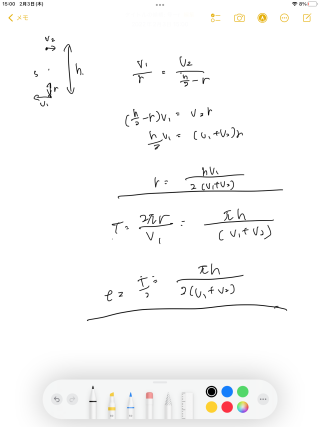 15:00 2月3日(木)
8%
メモ
v₂
h
s
r
v₁
v₁/r = v₂/(h/2 - r)
(h/2 - r)v₁ = v₂r
h/2 v₁ = (v₁+v₂)r
r = hv₁/2(v₁+v₂)
T = 2πr/v₁ = πh/(v₁+v₂)
t = T/2 = πh/2(v₁+v₂)